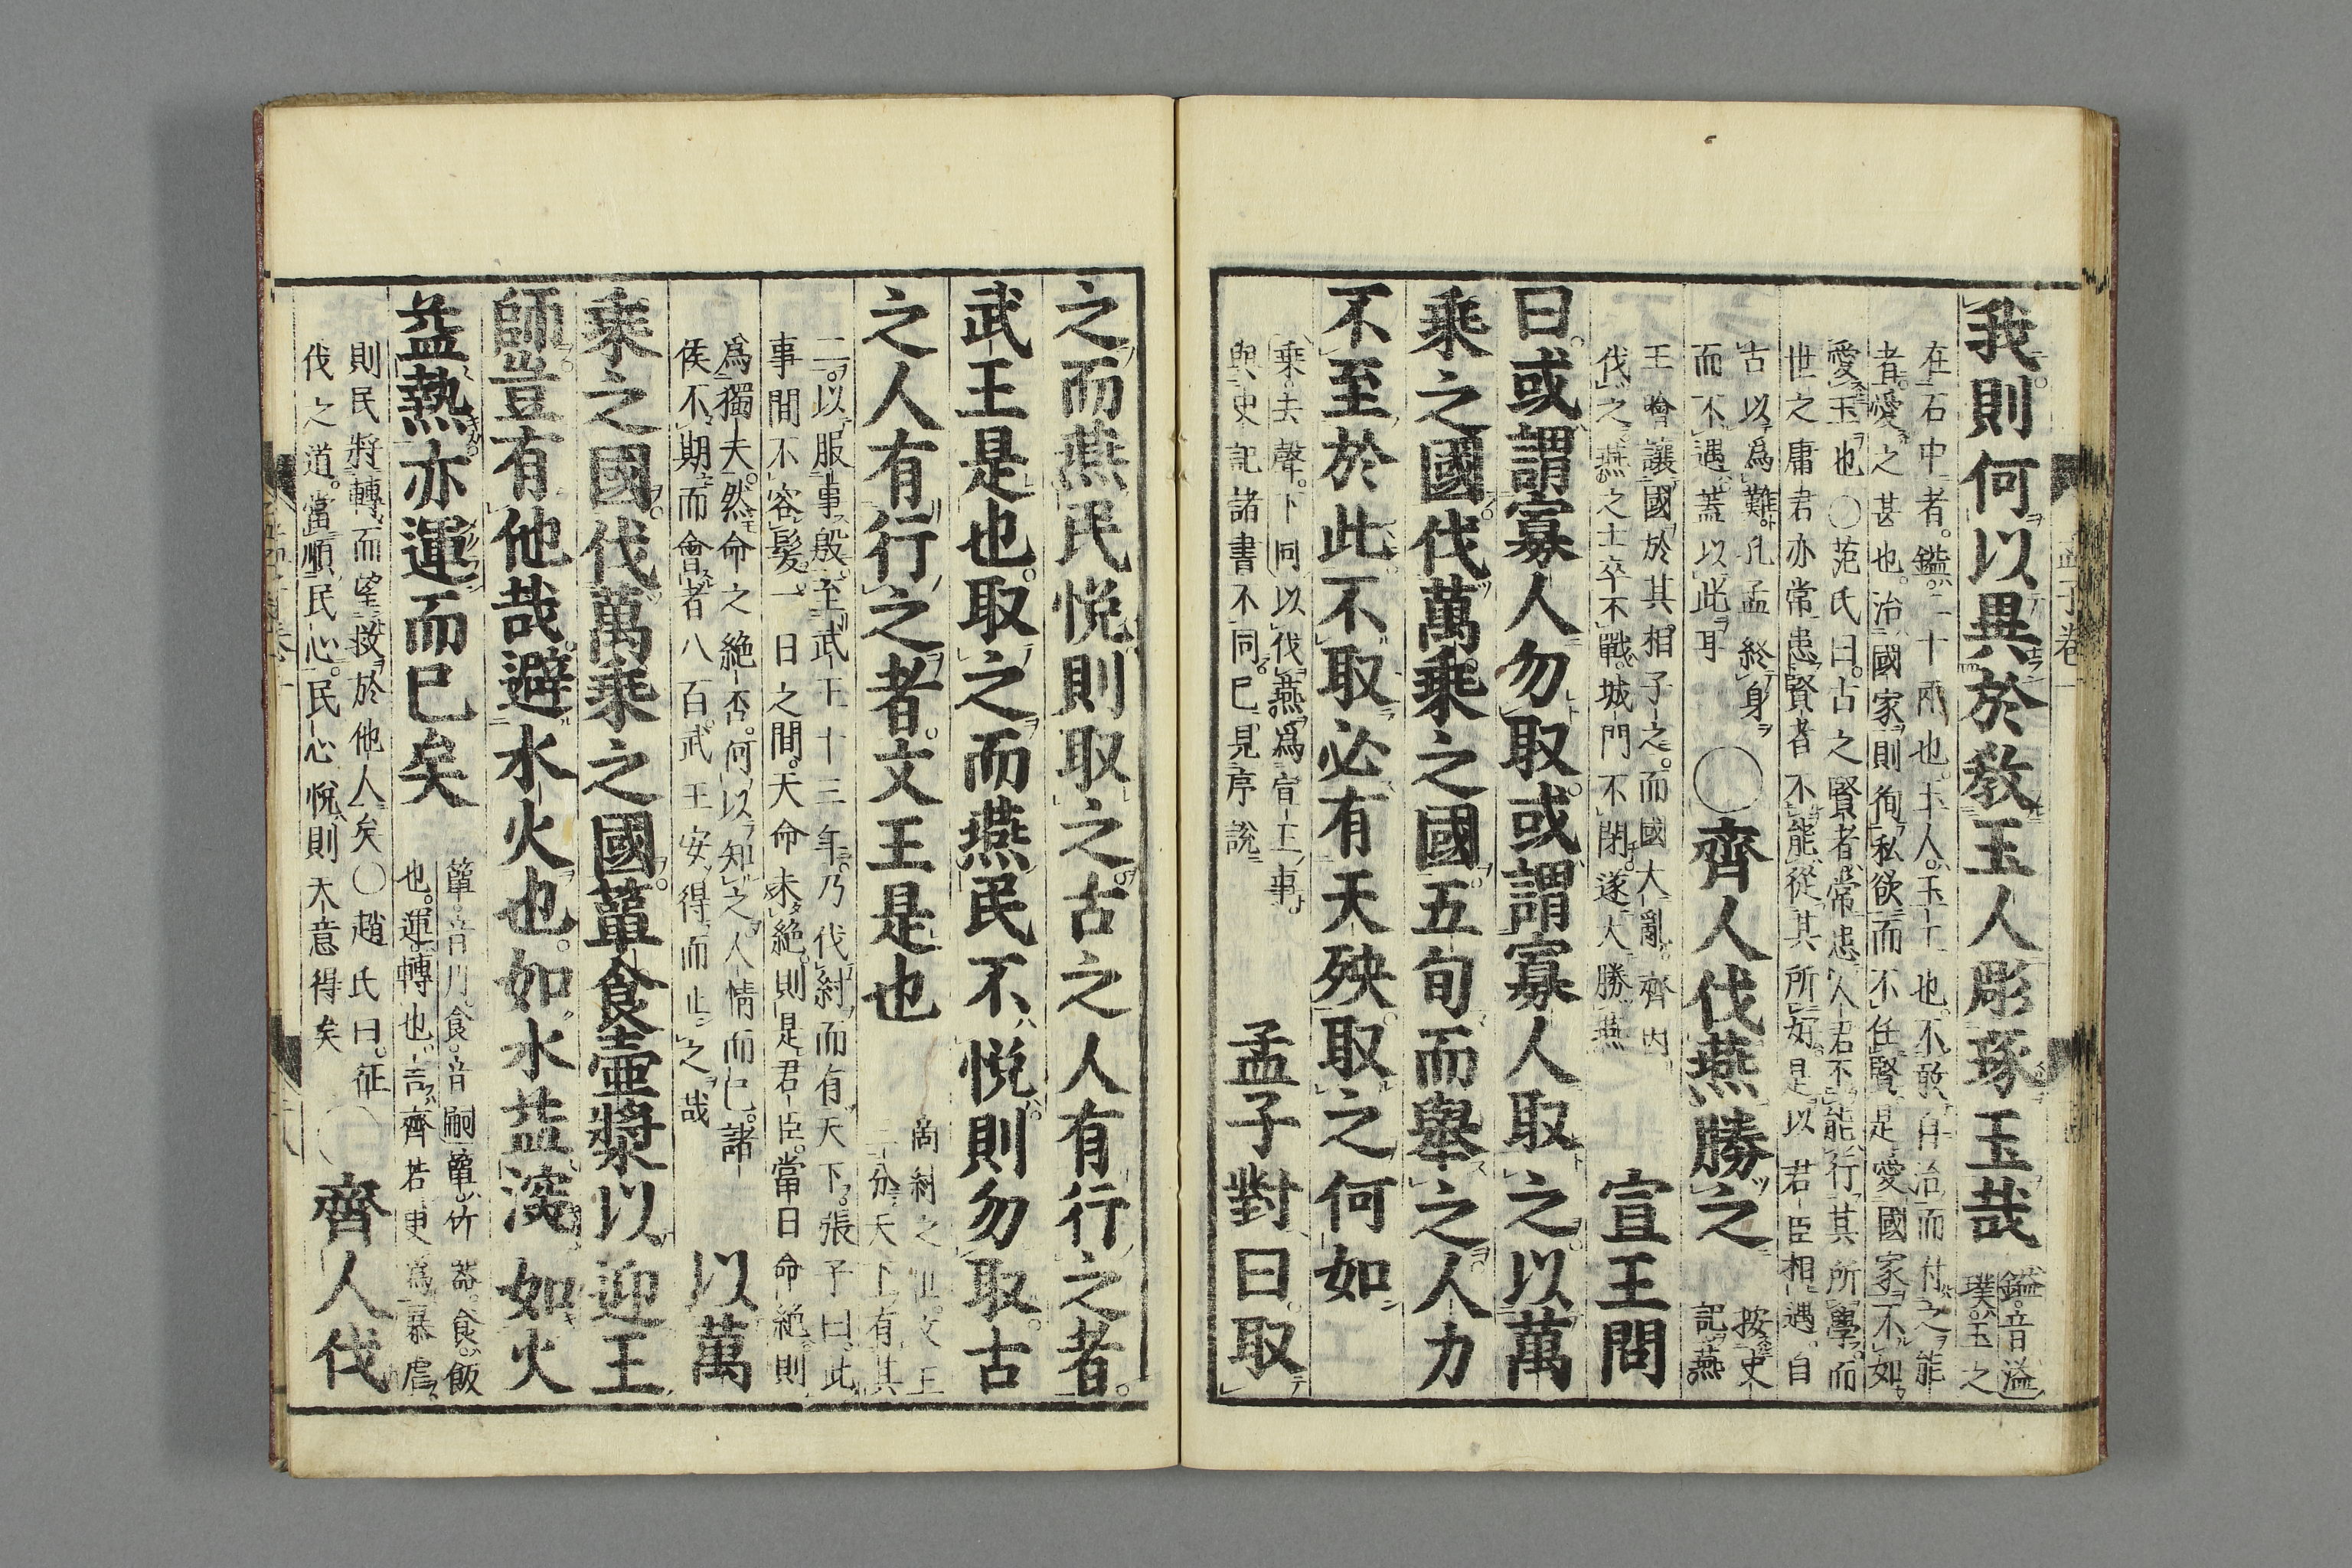 我則何以異於教玉人彫琢玉哉
鎰音溢
璞玉之
在石中者鎰二十兩也玉人玉工也不敢自治而付之能
者愛之甚也治國家則徇私欲而不任賢是愛國家不如
愛玉也○范氏曰古之賢者常患人君不能行其所學而
世之庸君亦常患賢者不能從其所好是以君臣相遇自
古以爲難孔孟終身
而不遇蓋以此耳
○齊人伐燕勝之
按史
記燕
王噲讓國於其相子之而國大亂齊因
伐之燕之士卒不戰城門不閉遂大勝燕
宣王問
曰或謂寡人勿取或謂寡人取之以萬
乘之國伐萬乘之國五旬而舉之人力
不至於此不取必有天殃取之何如
乘去聲下同以伐燕爲宣王事
與史記諸書不同已見序說
孟子對曰取
之而燕民悅則取之古之人有行之者
武王是也取之而燕民不悅則勿取古
之人有行之者文王是也
商紂之世文王
三分天下有其
二以服事殷至武王十三年乃伐紂而有天下張子曰此
事間不容髮一日之間天命未絕則是君臣當日命絕則
爲獨夫然命之絕否何以知之人情而已諸
侯不期而會者八百武王安得而止之哉
以萬
乘之國伐萬乘之國簞食壺漿以迎王
師豈有他哉避水火也如水益深如火
益熱亦運而已矣
簞音丹食音嗣簞竹器食飯
也運轉也言齊若更爲暴虐
則民將轉而望救於他人矣○趙氏曰征
伐之道當順民心民心悅則天意得矣
○齊人伐